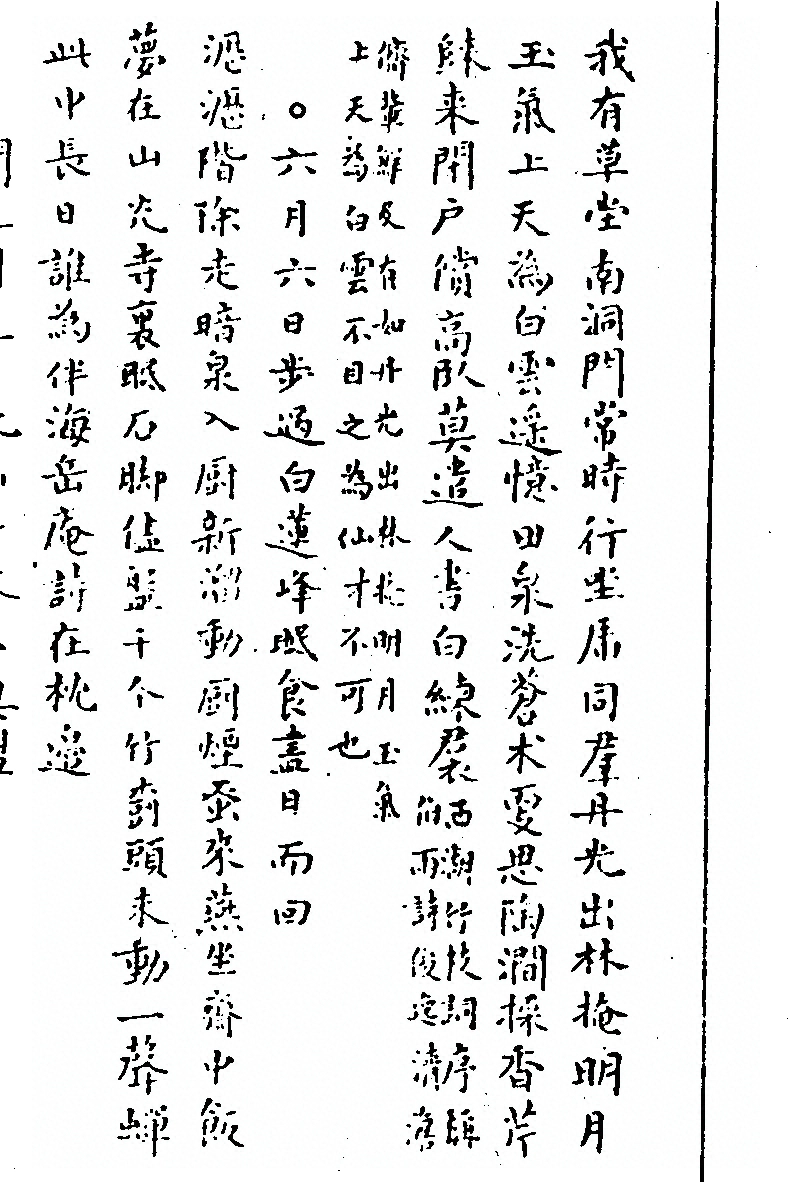 我有草堂南洞門常時行坐虎同羣丹光出林掩明月
玉氣上天為白雲遥憶田泉洗蒼术更思陶澗採香芹
歸来閉戶償高臥莫遣人書白練裙西湖竹枝詞序稱
伯雨詩俊逸清麗
儕輩鮮及有如丹光出林掩明月玉氣
上天為白雲不目之為仙才不可也
○六月六日步過白蓮峰煕食盡日而回
濕濕階除走暗泉入厨新溜動厨煙
来燕坐齋中飯
夢在山光寺裏眠石脚虛盤千个竹
頭来動一聲蟬
此中長日誰為伴海岳庵詩在枕邊